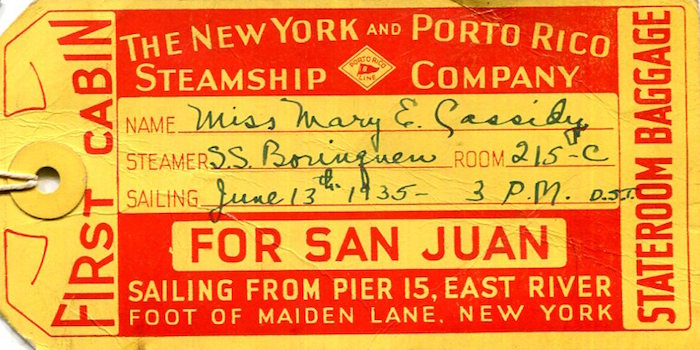 FIRST CABIN
THE NEW YORK AND PORTO RICO
STEAMSHIP COMPANY
PORTO RICO
LINE
NAME Miss Mary E. Cassidy
STEAMER S.S. Borinquen ROOM 215-C
SAILING June 13th 1935- 3 P.M. D.S.T.
FOR SAN JUAN
SAILING FROM PIER 15, EAST RIVER
FOOT OF MAIDEN LANE, NEW YORK
STATEROOM BAGGAGE